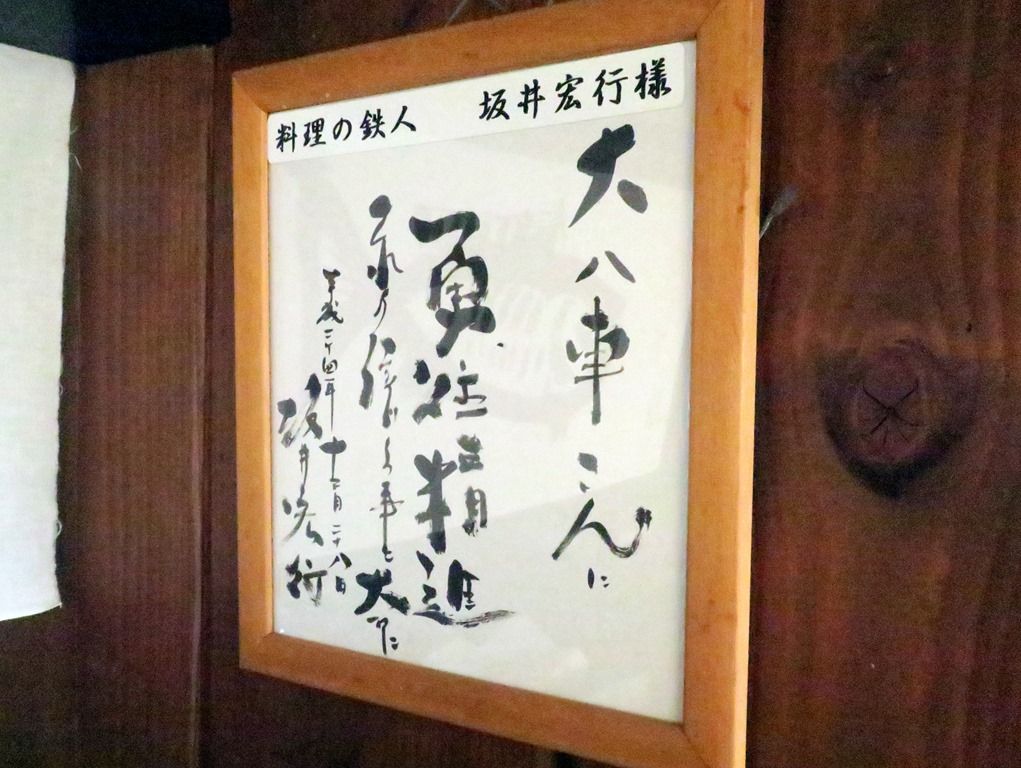 料理の鉄人　坂井宏行様
大八車さんに
勇往精進
事を大切に
平成二十四年十二月二十八日
坂井宏行